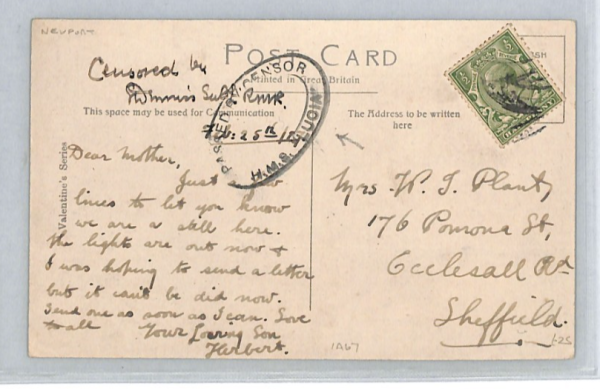 NEWPORT
POST CARD
Printed in Great Britain
Censored by
Sub RNVR.
This space may be used for Communication
The Address to be written
here
Feb: 25th
PASSED BY CENSOR
H.M.S.
Valentine's Series
Dear Mother,
Just a few
lines to let you know
we are a still here.
The lights are out now &
I was hoping to send a letter
but it can't be did now.
Send one as soon as I can. Love
to all Your Loving Son
Herbert.
Mrs. W. J. Plant,
176 Pomona St,
Ecclesall Rd
Sheffield.
1A67
1-25